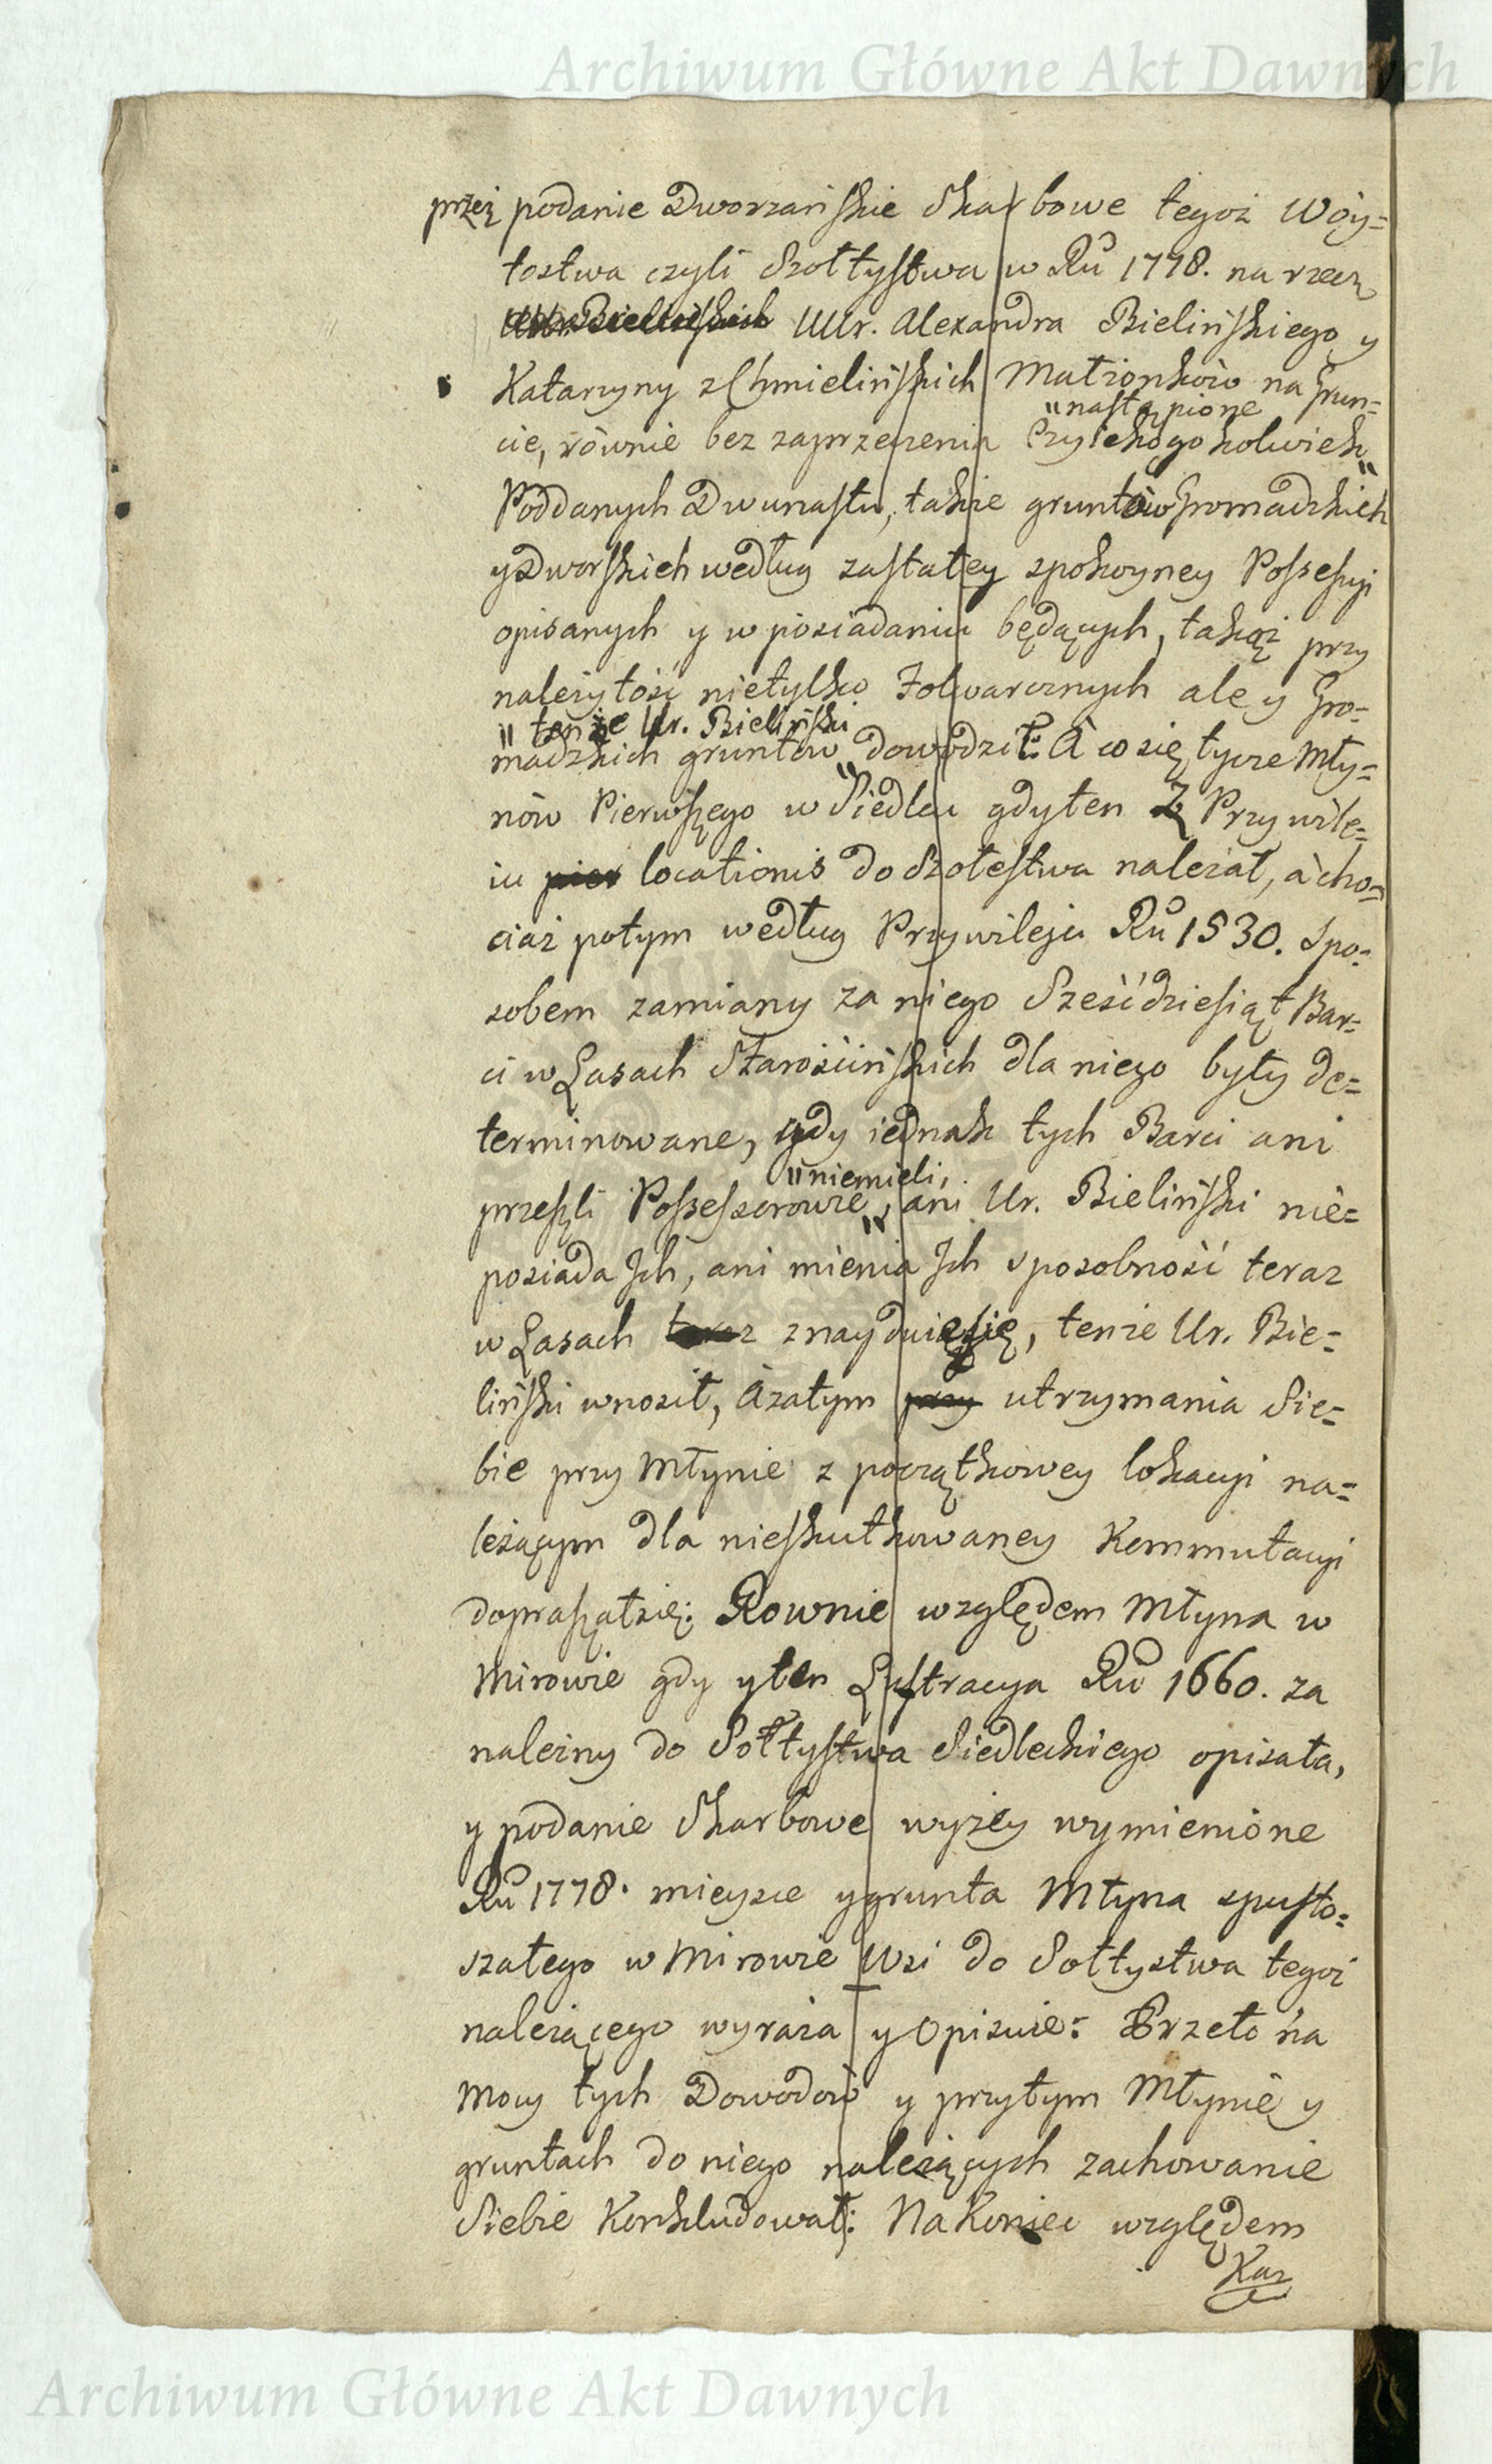 Archiwum Główne Akt Dawnych
przez podanie Dworzańskie Skarbowe tegoż Wóy=
tostwa czyli Szołtystwa w Ru 1778. na rzecz
Ur. Bielińskich UUr. Alexandra Bielińskiego y
Katarzyny z Chmielińskich Małżonków na Grun=
"nastąpione
cie, równie bez zaprzeczenia Czyiegokolwiek"
Poddanych Dwunastu, także gruntów Gromadzkich
y Dworskich według zastałey spokoyney Possessyi
opisanych y w posiadaniu będących, takąż przy
należytość nietylko Folwarcznych ale y Gro=
" tenże Ur. Bieliński
madzkich gruntów" dowodził: A co się tycze Mły=
nów Pierwszego w Siedlcu gdy ten Z Przywile=
iu pier locationis do Szołestwa należał, à cho=
ciaż potym według Przywileju Ru 1530. Spo=
sobem zamiany za niego Sześćdziesiąt Bar=
ci w Lasach Starościńskich dla niego były de=
terminowane, gdy iednak tych Barci ani
"niemieli,
przeszli Possessorowie", ani Ur. Bieliński nie=
posiada Ich, ani mienia Ich sposobność teraz
w Lasach teraz znayduie się, tenże Ur. Bie=
liński wnosił, Azatym przy utrzymania Sie=
bie przy Młynie z początkowey lokacyi na=
leżącym dla nieskutkowaney Kommutacyi
dopraszał się: Rownie względem Młyna w
Mirowie gdy y ten Lustracya Ru 1660. za
należny do Sołtystwa Siedleckiego opisała,
y podanie Skarbowe wyżey wymienione
Ru 1778. mieysce y grunta Młyna spusto=
szałego w Mirowie Wsi do Sołtystwa tegoż
należącego wyraża y Opisuie: Przeto na
Mocy tych Dowodów y przytym Młynie y
gruntach do niego należących zachowanie
Siebie Konkludował; Nakoniec względem
Kar
Archiwum Główne Akt Dawnych